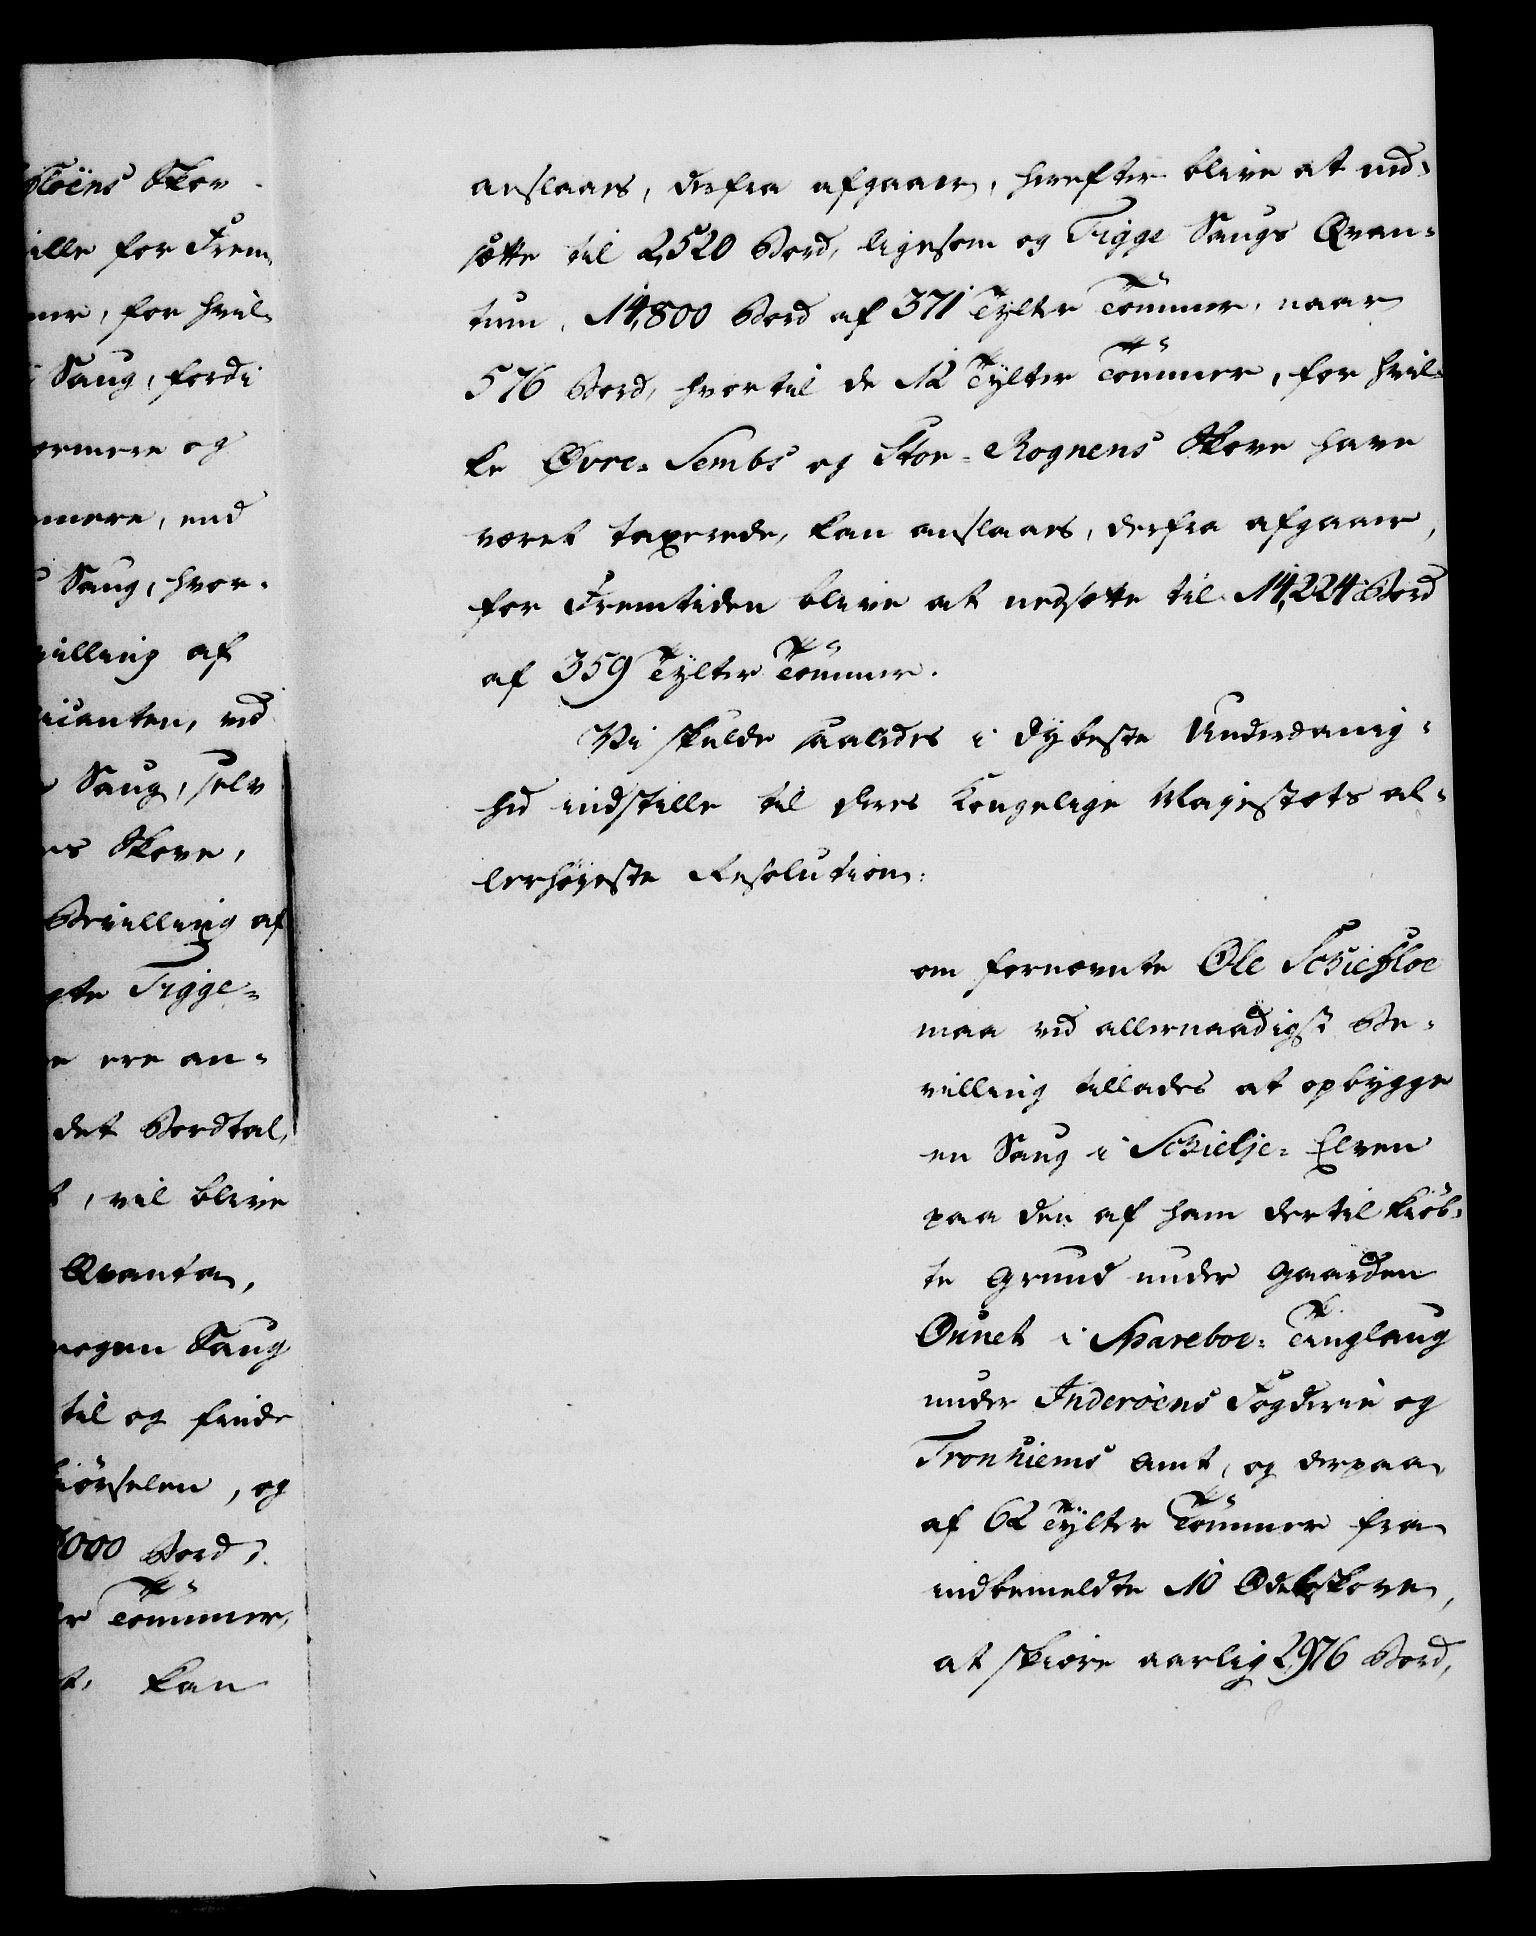 floëns Skov
ille for Frem,
mer, for hvil-
Saug, fordi
ermere og
mere, end
Saug, hvor-
villing af
icanten, ved
Saug, selv
es Skove,
Bevilling af
gte Figge-
e ere an-
det Bordtal,
t, vil blive
Qvanta,
nogen Saug
til og finde
kiörselen, og
000 Bord,
er Tömmer,
t, kan
anslaaes, derfra afgaaer, herefter blive at ned-
sætte til 2,520 Bord, ligesom og Figge Saugs Qvan-
tum, 14,800 Bord af 371 Tylter Tömmer, naar
576 Bord, hvortil de 12 Tylter Tömmer, for hvil-
ke Øvre- Sembs og Stor- Rognens Skove have
været taxerede, kan anslaaes, derfra afgaaer,
for Fremtiden blive at nedsætte til 14,224 Bord
af 359 Tylter Tömmer.
Vi skulde saaledes i dybeste Underdanig-
hed indstille til Deres Kongelige Majestæts al-
lerhöyeste Resolution:
om fornævnte Ole Schiefloe
maa ved allernaadigst Be-
villing tillades at opbygge
en Saug i Schielje- Elven
paa den af ham dertil kiöb-
te Grund under Gaarden
Ønnet i Spareboe- Tinglaug
under Inderöens Fogderie og
Tronhiems Amt, og derpaa
af 62 Tylter Tömmer fra
indbemeldte 10 Odelsskove,
at skiære aarlig 2,976 Bord,